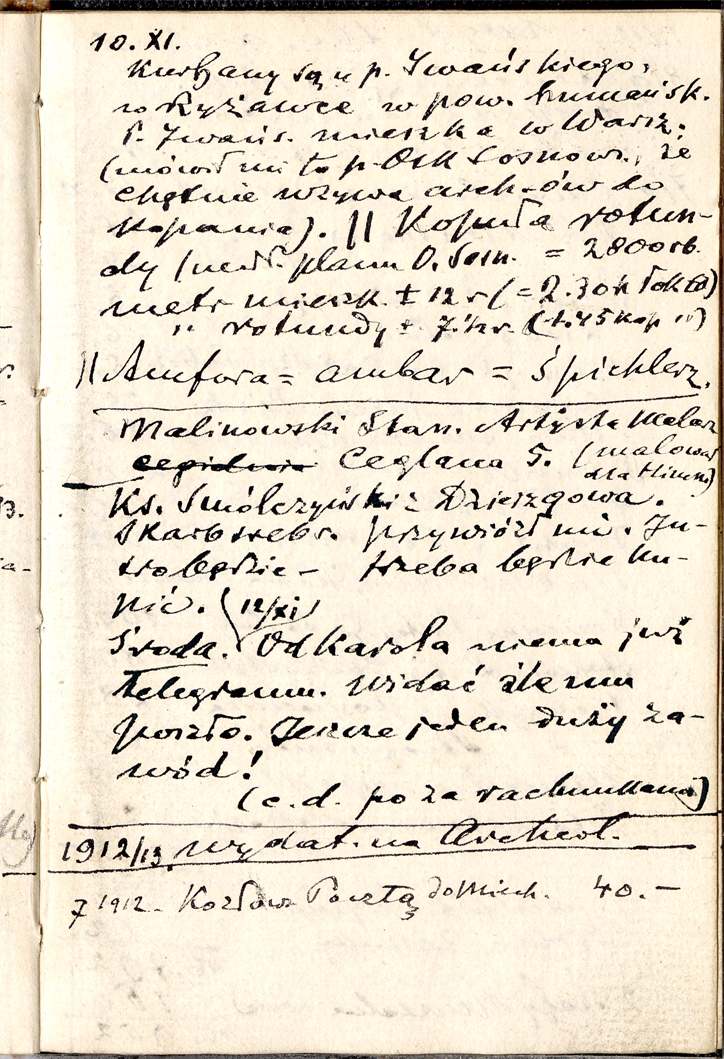 10. XI.
Kurhany są u p. Iwańskiego,
w Ryżawce w pow. humańsk.
P. Iwańs. mieszka w Warsz.
(mówił mi to p. Osk Sosnow., że
chętnie wzywa arch-ów do
kopania). || Kopuła rotun-
dy (według planu O. Sosn. = 2800rb.
metr mieszk. ± 12 r (= 2.30k łokta)
" rotundy ± 7.½r. (1.45 kop ")
|| Amfora = ambar = śpichlerz.
Malinowski Stan. Artysta Malarz
Ceglana 5. (malował
dla
Ks. Smólczyński z Dzierzgowa.
Skarb srebr. przywiózł mi. Ju-
tro będzie – trzeba będzie ku-
pić. (12/XI)
Środa. Od Karola niema już
telegramu. Widać źle mu
poszło. Jeszcze jeden duży za-
wód!
(c. d. poza rachunkami)
1912/13. wydat. na Archeol.
7 1912. Kozłow. Pocztą do Miech. 40.–